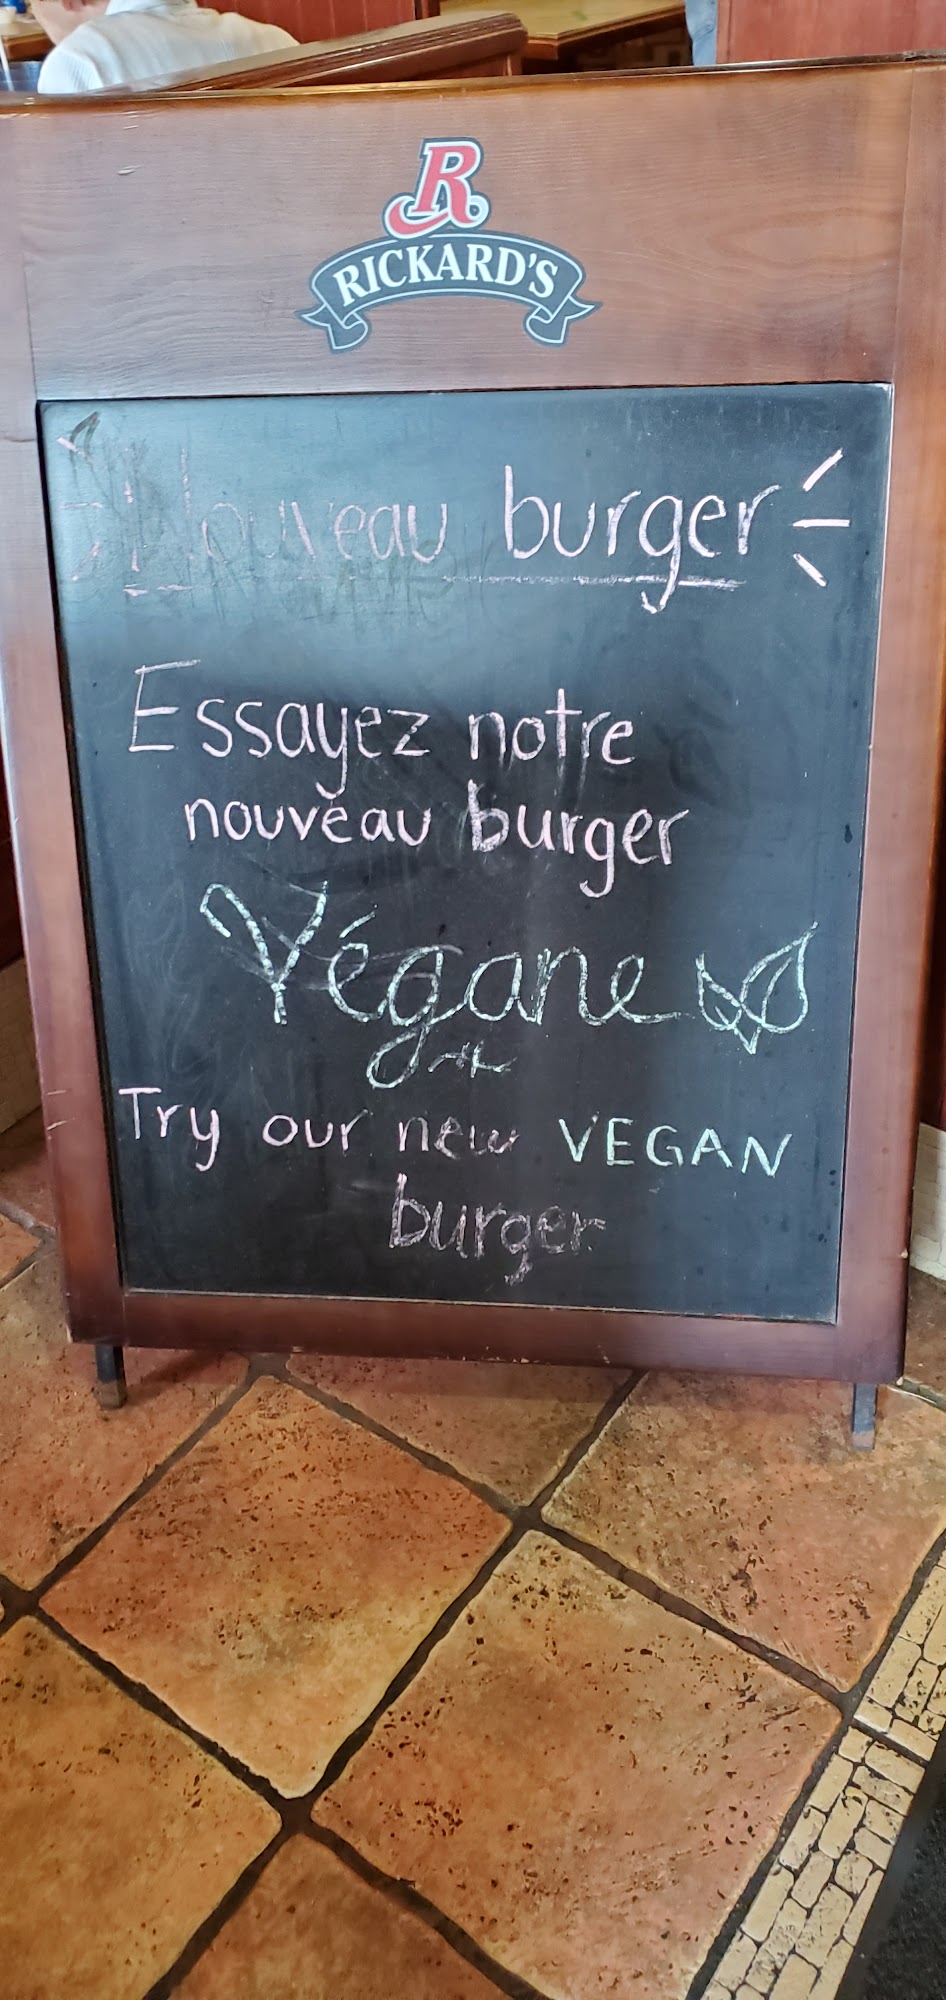 R
RICKARD'S
Nouveau burger
Essayez notre
nouveau burger
Végane
Try our new VEGAN
burger